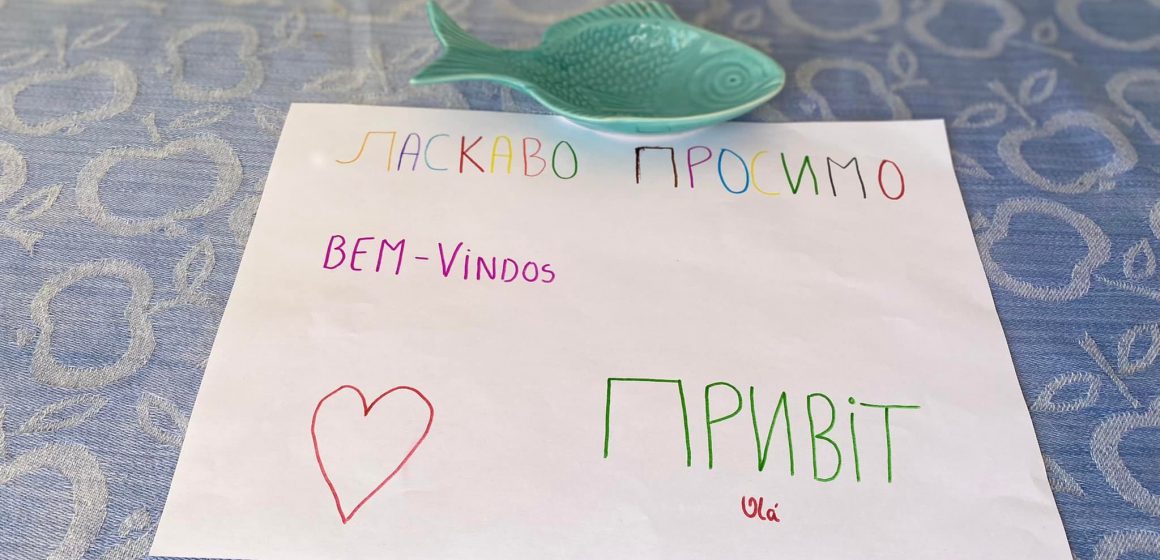 ЛАСКАВО ПРОСИМО
BEM-VINDOS
ПРИВІТ
Olá